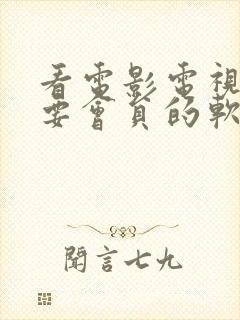 看電影電視
要會員的軟
聞言七九